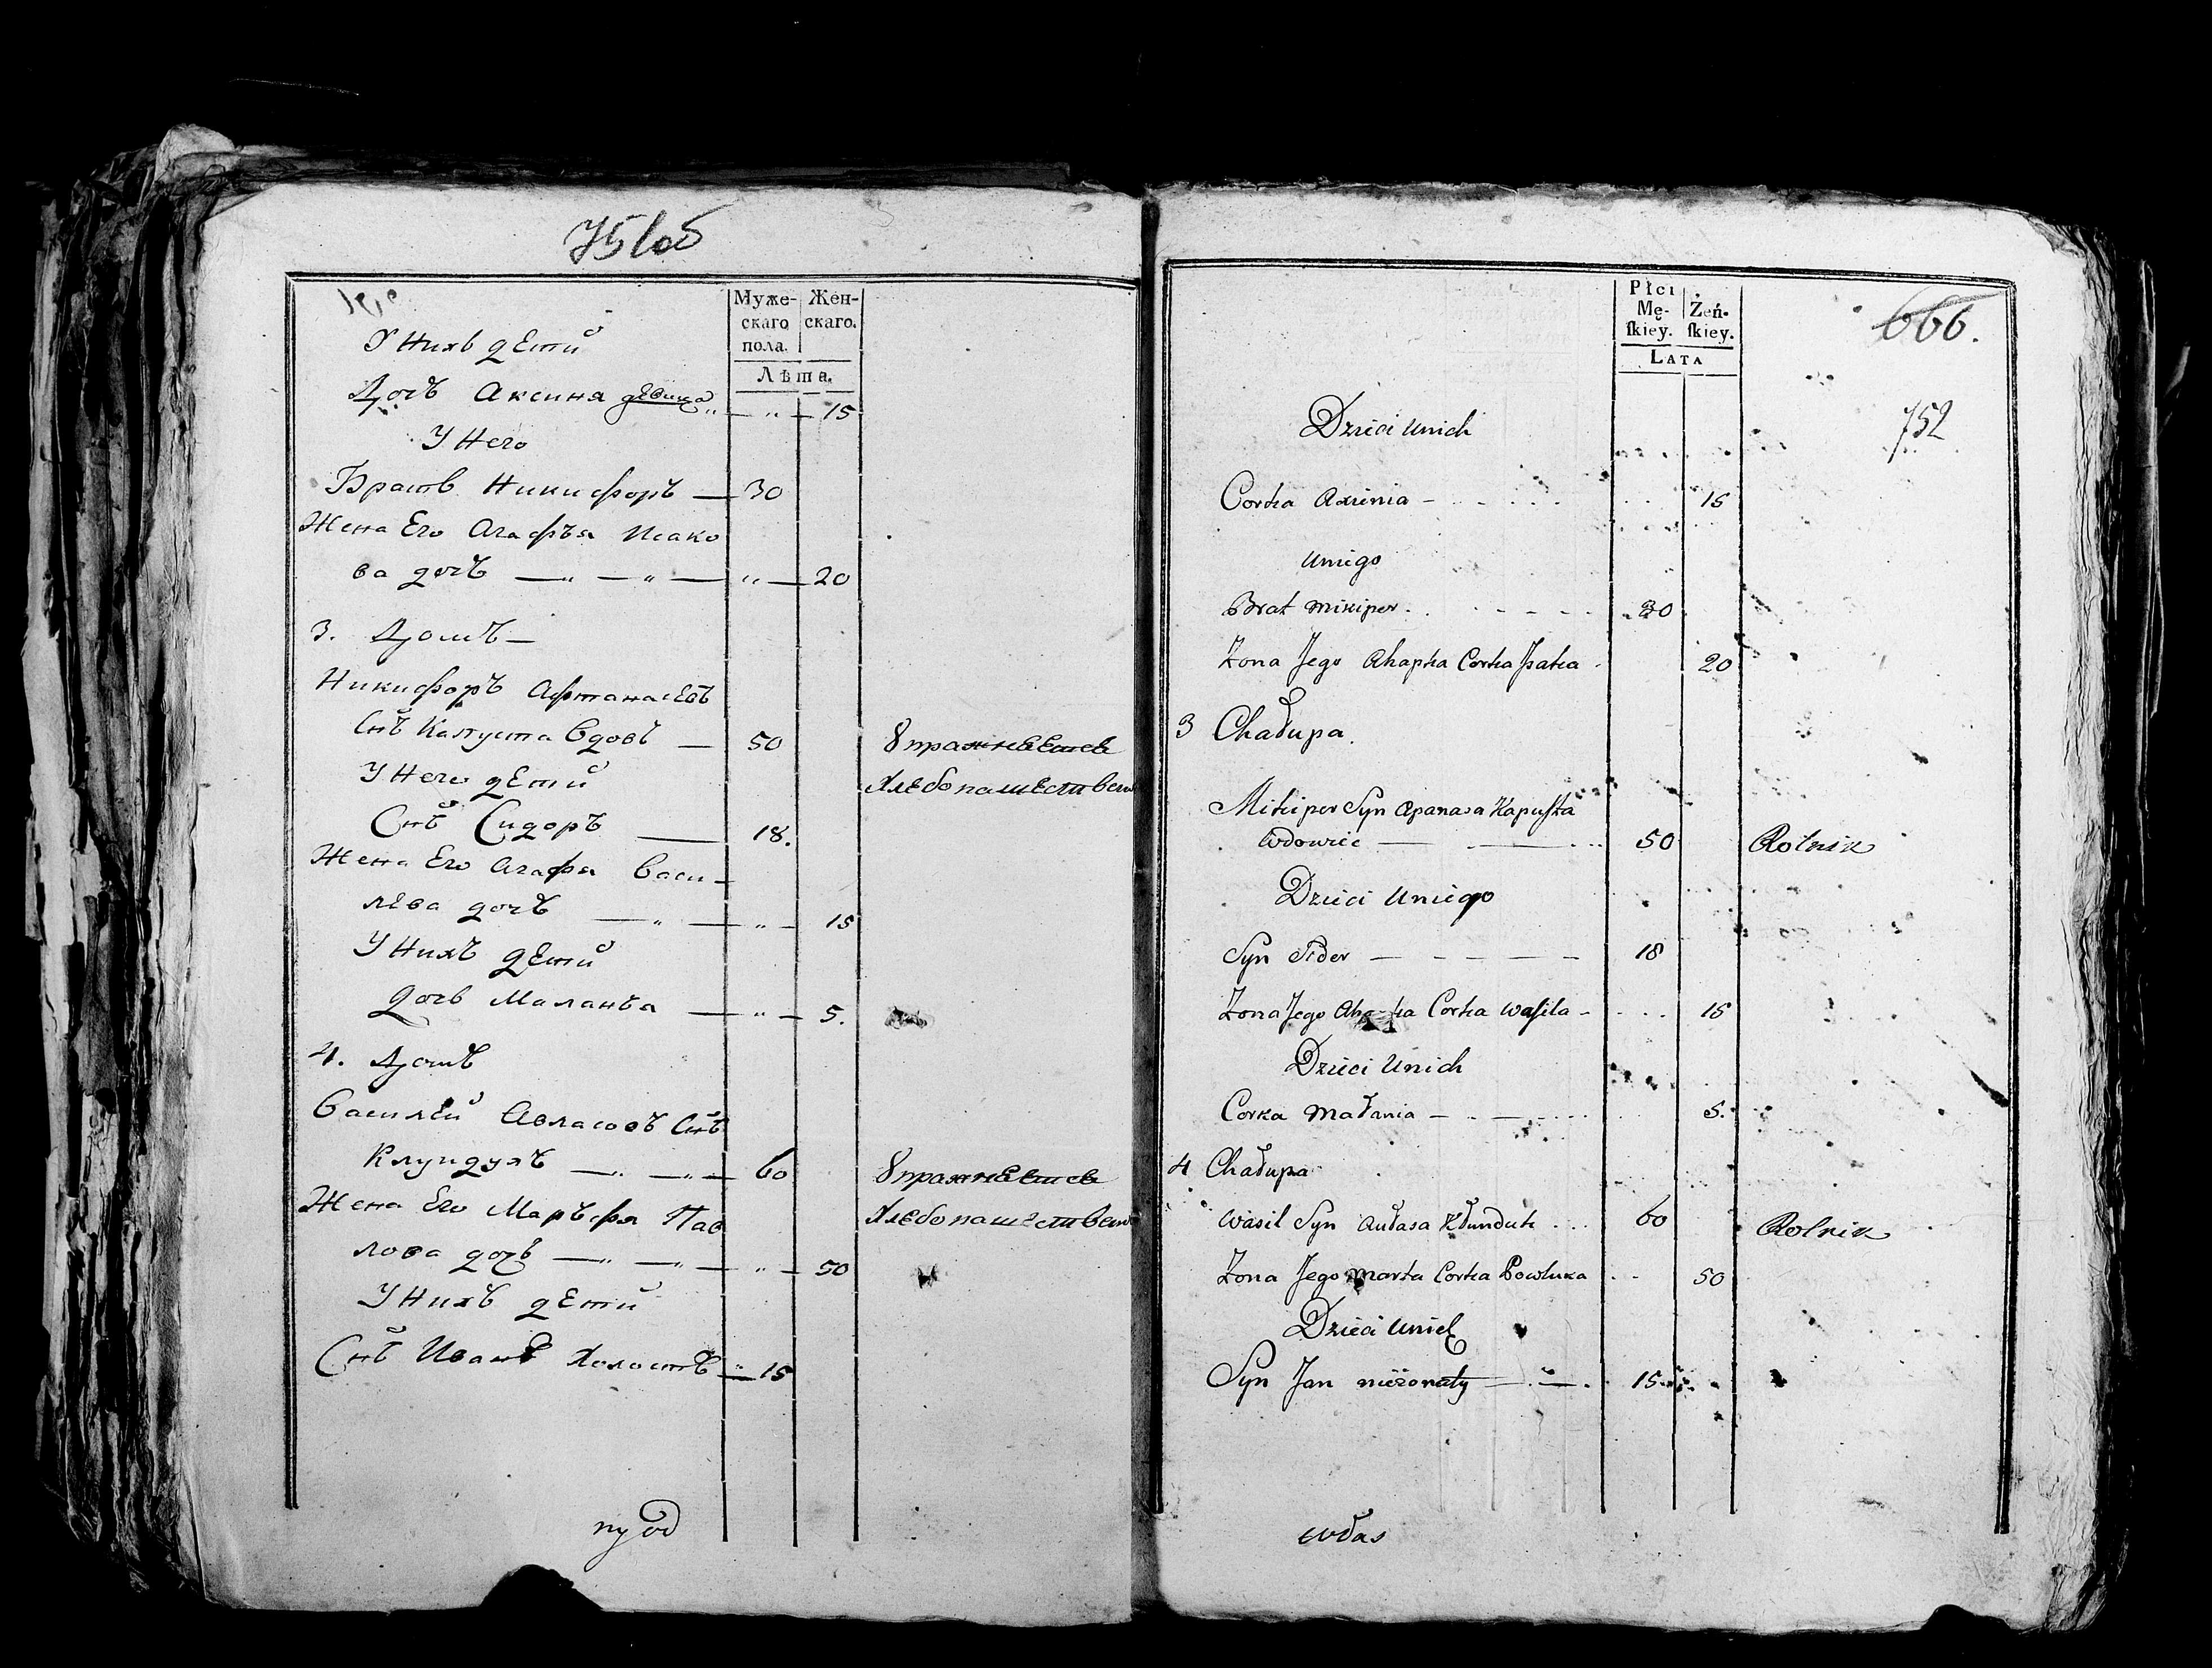 751об
Муже-
скаго
пола.
Жен-
скаго.
Лѣта.
У Нихъ дѣтй
Дочь Аксиня дѣвица „ — „ — 15
У Него
Братъ Никифоръ — 30
Жена Его Агафья Исако
ва дочь — „ — „ — „ — 20
3. Домъ —
Никифоръ Афтанасѣвъ
Снъ Капуста Вдовъ — 50
Упражнѣетсѣ
У Него дѣтй
Хлѣбопашеством
Снъ Сидоръ — 18.
Жена Его Агафя Васи-
лѣва дочь — „ — „ — 15
У Нихъ дѣтй
Дочь Маланья — „ — 5.
4. Домъ
Василѣй Авласовъ Снъ
Клундукъ — „ — „ — 60
Упражнѣетсѣ
Жена Его Марьфя Пав
Хлѣбопашеством
лова дочь — „ — „ — „ — 50
У Нихъ дѣтй
Снъ Иванъ Холостъ „ — 15
Płci
Mę-
ſkiey.
Żeń-
ſkiey.
LATA
666.
752
Dzieci unich
Corka Axinia - - - - - 15
uniego
Brat Mikiper - - - - 30
Żona Jego Ahapka Corka Isaka 20
3 Chałupa.
Mikiper Syn Apanasa Kapuſta
Wdowiec — — 50 Rolnik
Dzieci uniego
Syn Sider — — — — — 18
Żona Jego Ahapka Corka Waſila - - - 15
Dzieci Unich
Corka Małania — - — - 5.
4 Chałupa
Wasil Syn Aułasa Kłunduk . . . 60 Rolnik
Żona Jego Marta Corka Pawluka . - - 50
Dzieci unich
Syn Jan nieżonaty — . — . 15
włas